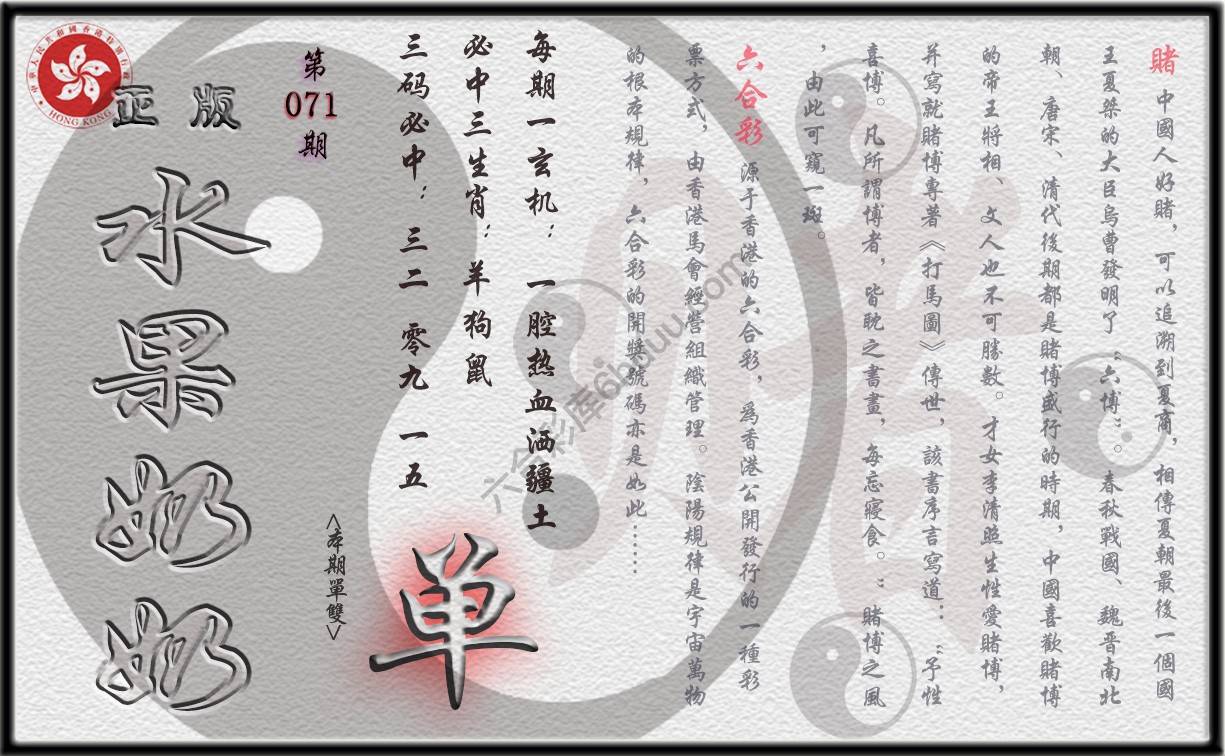 賭 中國人好賭，可以追溯到夏商，相傳夏朝最後一個國
王夏桀的大臣烏曹發明了“六博”。春秋戰國、魏晋南北
朝、唐宋、清代後期都是賭博盛行的時期，中國喜歡賭博
的帝王將相、文人也不可勝數。才女李清照生性愛賭博，
并寫就賭博專著《打馬圖》傳世，該書序言寫道：“予性
喜博。凡所謂博者，皆耽之書畫，每忘寢食。”賭博之風
，由此可窺一斑。
六合彩 源于香港的六合彩，爲香港公開發行的一種彩
票方式，由香港馬會經營組織管理。陰陽規律是宇宙萬物
的根本規律，六合彩的開獎號碼亦是如此……
每期一玄机：一腔热血洒疆土
必中三生肖：羊狗鼠
三码必中：三二 零九 一五
单
<本期單雙>
第
071
期
正版
水果奶奶
中華人民共和國香港特別行政區
HONG KONG
六合彩库6hduu.com